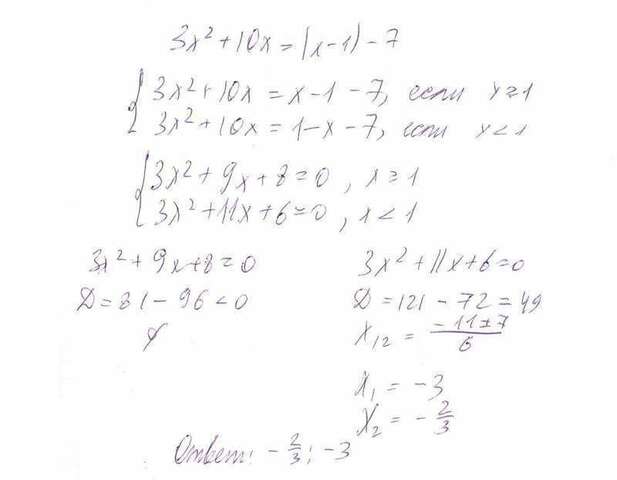 3x² + 10x = |x - 1| - 7
{ 3x² + 10x = x - 1 - 7, если x ≥ 1
3x² + 10x = 1 - x - 7, если x < 1
{ 3x² + 9x + 8 = 0, x ≥ 1
3x² + 11x + 6 = 0, x < 1
3x² + 9x + 8 = 0
D = 81 - 96 < 0
∅
3x² + 11x + 6 = 0
D = 121 - 72 = 49
x₁₂ = (-11 ± 7)/6
x₁ = -3
x₂ = -2/3
Ответ: -2/3; -3